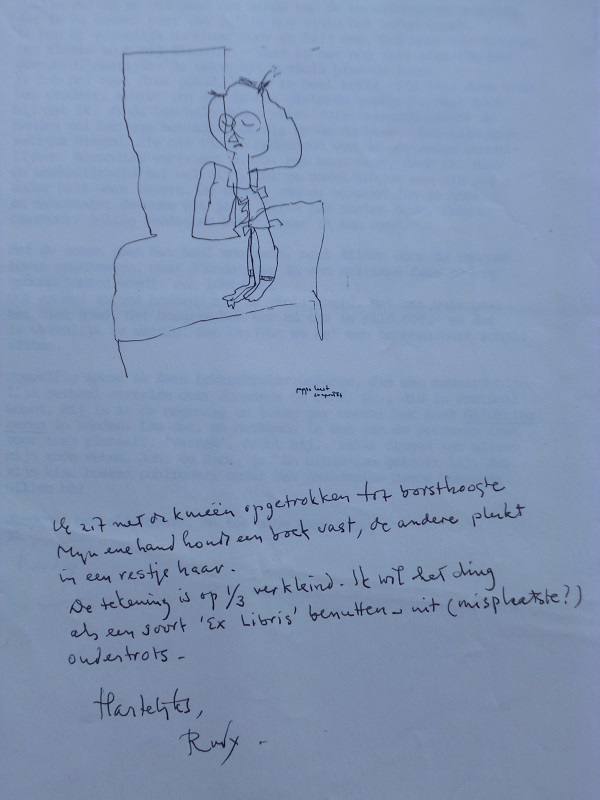 zit met de knieën opgetrokken tot borsthoogte
Mijn ene hand houdt een boek vast, de andere plukt
in een restje haar.
De tekening is op 1/3 verkleind. Ik wil het ding
als een soort 'Ex Libris' benutten - uit (misplaatste?)
oudertrots -
Hartelijks,
Rudy.